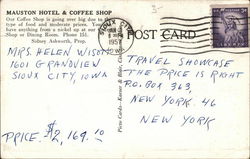 MAUSTON HOTEL & COFFEE SHOP
Our Coffee Shop is going over big due to the
type of food and moderate prices. You
have anything from a nickel up at our
Shop or Dining Room. Phone 151.
Sidney Ashworth, Prop.
SIOUX CITY
1957
POST CARD
MRS HELEN WISC
1601 GRANDVIEW
SIOUX CITY, IOWA
PRICE. $2,169.10
TRAVEL SHOWCASE
THE PRICE IS RIGHT
P.O. BOX 363,
NEW YORK. 46
NEW YORK